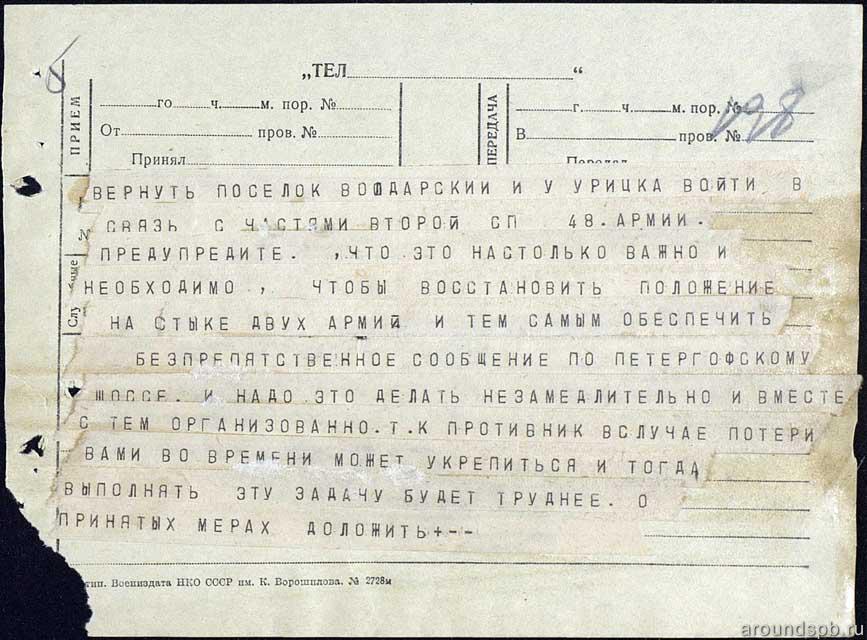 „ТЕЛ “
го ч. м. пор. №
От пров. №
Принял
ПРИЕМ
ПЕРЕДАЧА
г. ч. м. пор. №
В пров. №
Передал
198
ВЕРНУТЬ ПОСЕЛОК ВОЛОДАРСКИИ И У УРИЦКА ВОЙТИ В
СВЯЗЬ С ЧАСТЯМИ ВТОРОЙ СП 48. АРМИИ.
ПРЕДУПРЕДИТЕ. ,ЧТО ЭТО НАСТОЛЬКО ВАЖНО И
НЕОБХОДИМО , ЧТОБЫ ВОССТАНОВИТЬ ПОЛОЖЕНИЕ
НА СТЫКЕ ДВУХ АРМИЙ И ТЕМ САМЫМ ОБЕСПЕЧИТЬ
БЕЗПРЕПЯТСТВЕННОЕ СООБЩЕНИЕ ПО ПЕТЕРГОФСКОМУ
ШОССЕ. И НАДО ЭТО ДЕЛАТЬ НЕЗАМЕДЛИТЕЛЬНО И ВМЕСТЕ
С ТЕМ ОРГАНИЗОВАННО.Т.К ПРОТИВНИК ВСЛУЧАЕ ПОТЕРИ
ВАМИ ВО ВРЕМЕНИ МОЖЕТ УКРЕПИТЬСЯ И ТОГДА
ВЫПОЛНЯТЬ ЭТУ ЗАДАЧУ БУДЕТ ТРУДНЕЕ. О
ПРИНЯТЫХ МЕРАХ ДОЛОЖИТЬ+--
тип. Воениздата НКО СССР им. К. Ворошилова. № 2728м
aroundspb.ru